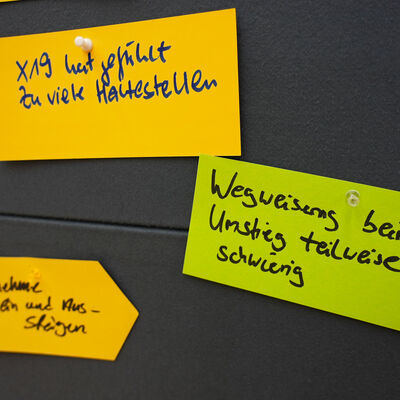 X19 hat gefühlt
Zu viele Haltestellen
Wegweisung bei
Umstieg teilweise
schwierig
ein und Aus-
steigen